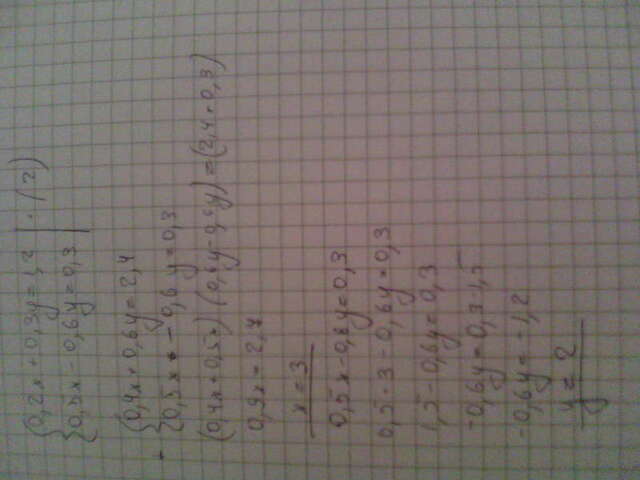 {0,2x + 0,3y = 1,2 | · (2)
{0,5x - 0,6y = 0,3 |
{0,4x + 0,6y = 2,4
{0,5x - 0,6y = 0,3
(0,4x + 0,5x) (0,6y - 0,6y) = (2,4 + 0,3)
0,9x = 2,7
x = 3
0,5x - 0,6y = 0,3
0,5 · 3 - 0,6y = 0,3
1,5 - 0,6y = 0,3
-0,6y = 0,3-1,5
-0,6y = -1,2
y = 2